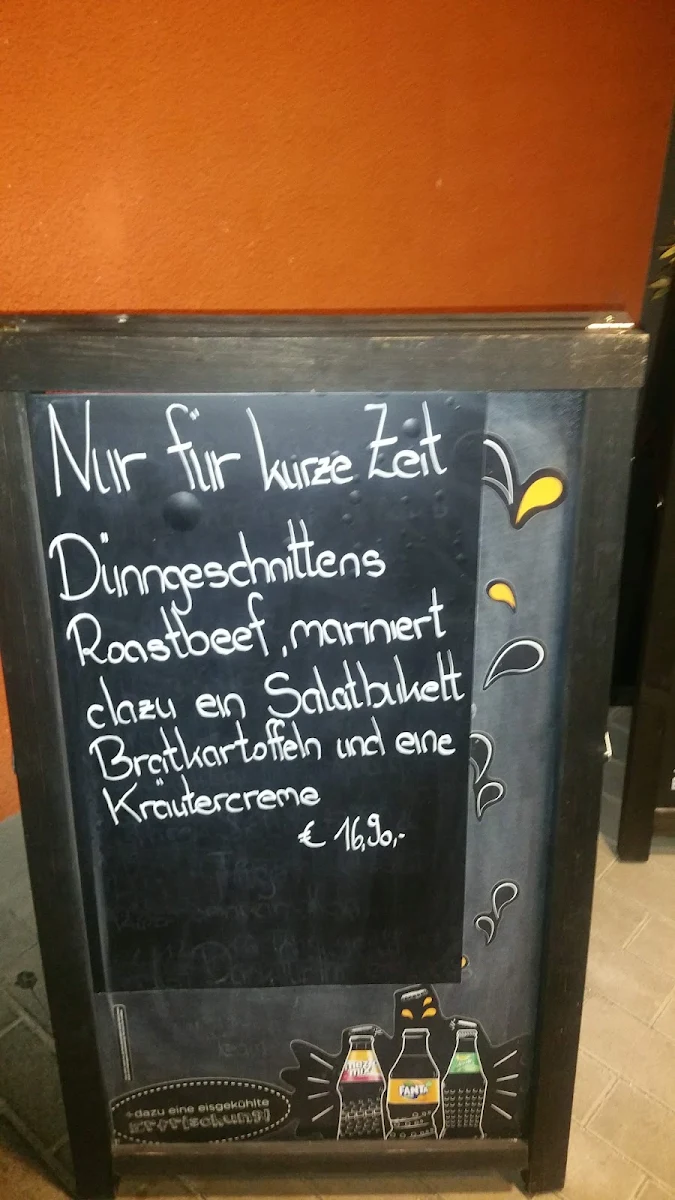 Nur für kurze Zeit
Dünngeschnittens
Roastbeef, mariniert
dazu ein Salatbukett
Bratkartoffeln und eine
Kräutercreme
€ 16,90,-
mezzo mix
FANTA
+dazu eine eisgekühlte
Erfr[schung]